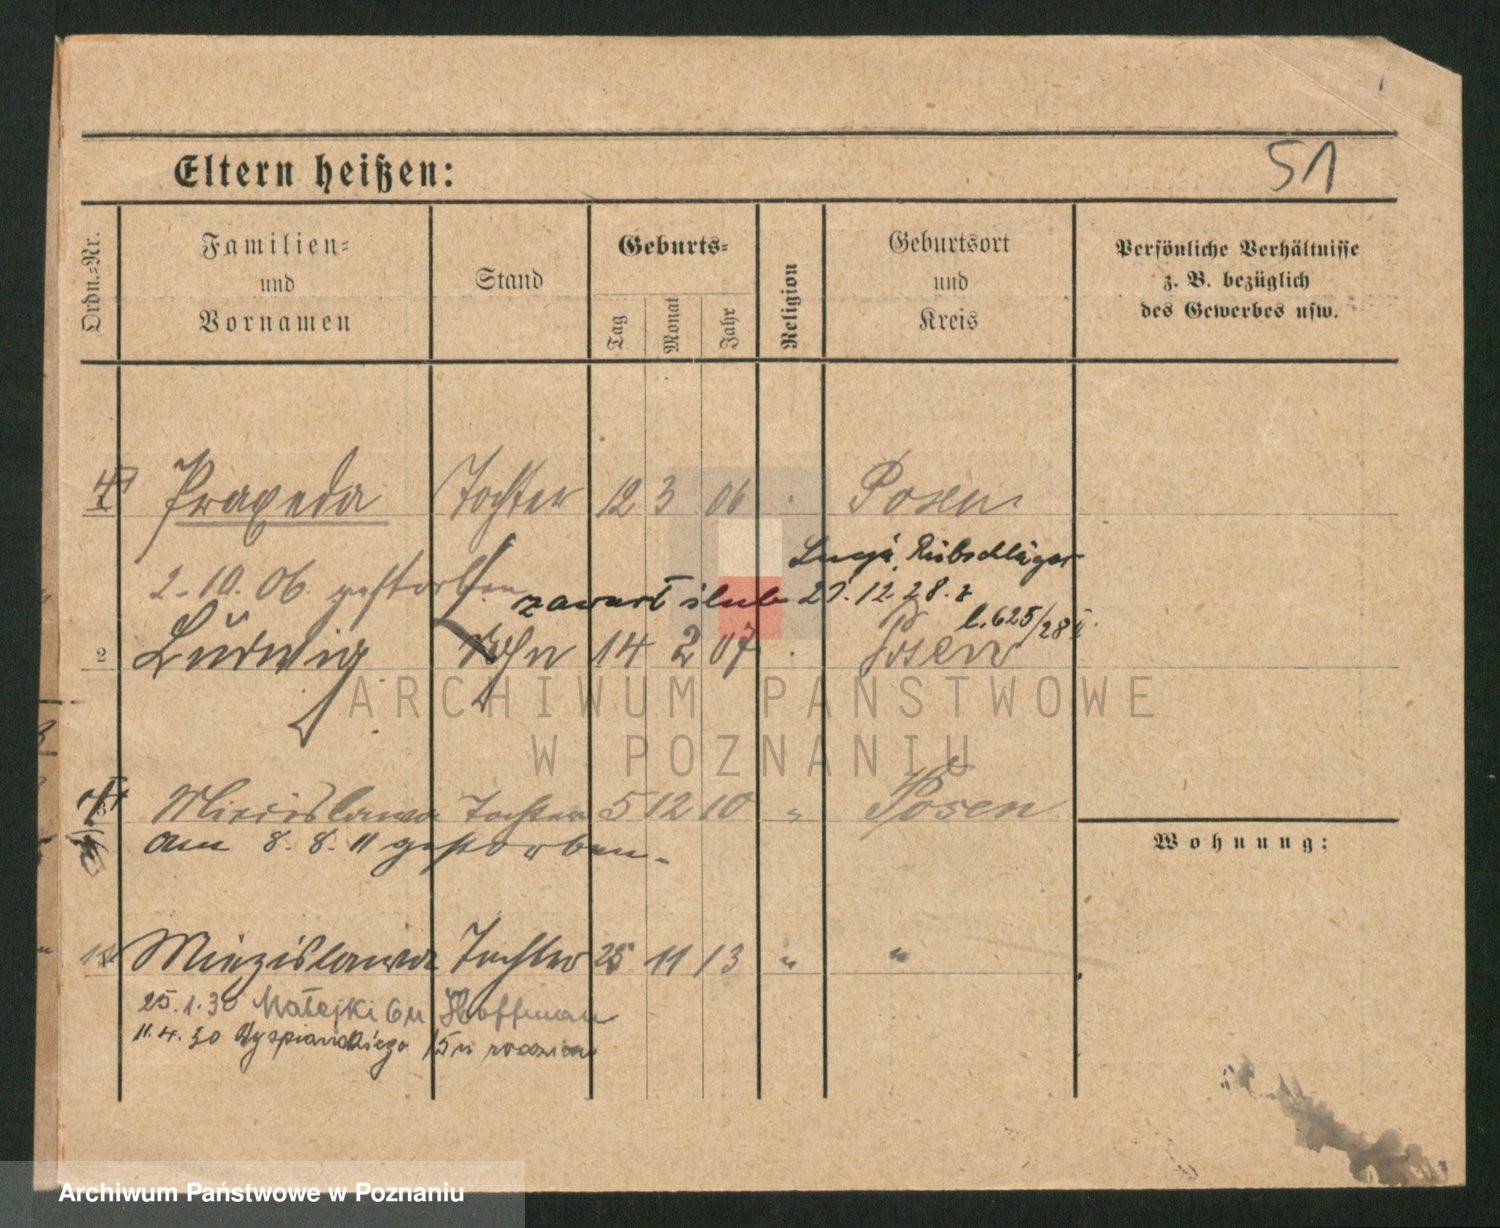 51
Eltern heißen:
Ordn.=Nr.
Familien=
und
Vornamen
Stand
Geburts=
Tag
Monat
Jahr
Religion
Geburtsort
und
Kreis
Persönliche Verhältnisse
z. B. bezüglich
des Gewerbes usw.
1 Praxeda Tochter 12 3 06 Posen
2.10.06. gestorben
Rübschläger
zawarł ślub 27.12.28.
l. 625/28
2 Ludwig Sohn 14 2 07 Posen
Miecislawa Tochter 5 12 10 " Posen
am 8. 8. 11 gestorben.
Wohnung:
Miezislawa Tochter 25 11 13 " "
25.1.30 Matejki 6 u Hoffman
11.4.30 Wyspiańskiego 15 u
ARCHIWUM PAŃSTWOWE
W POZNANIU
Archiwum Państwowe w Poznaniu